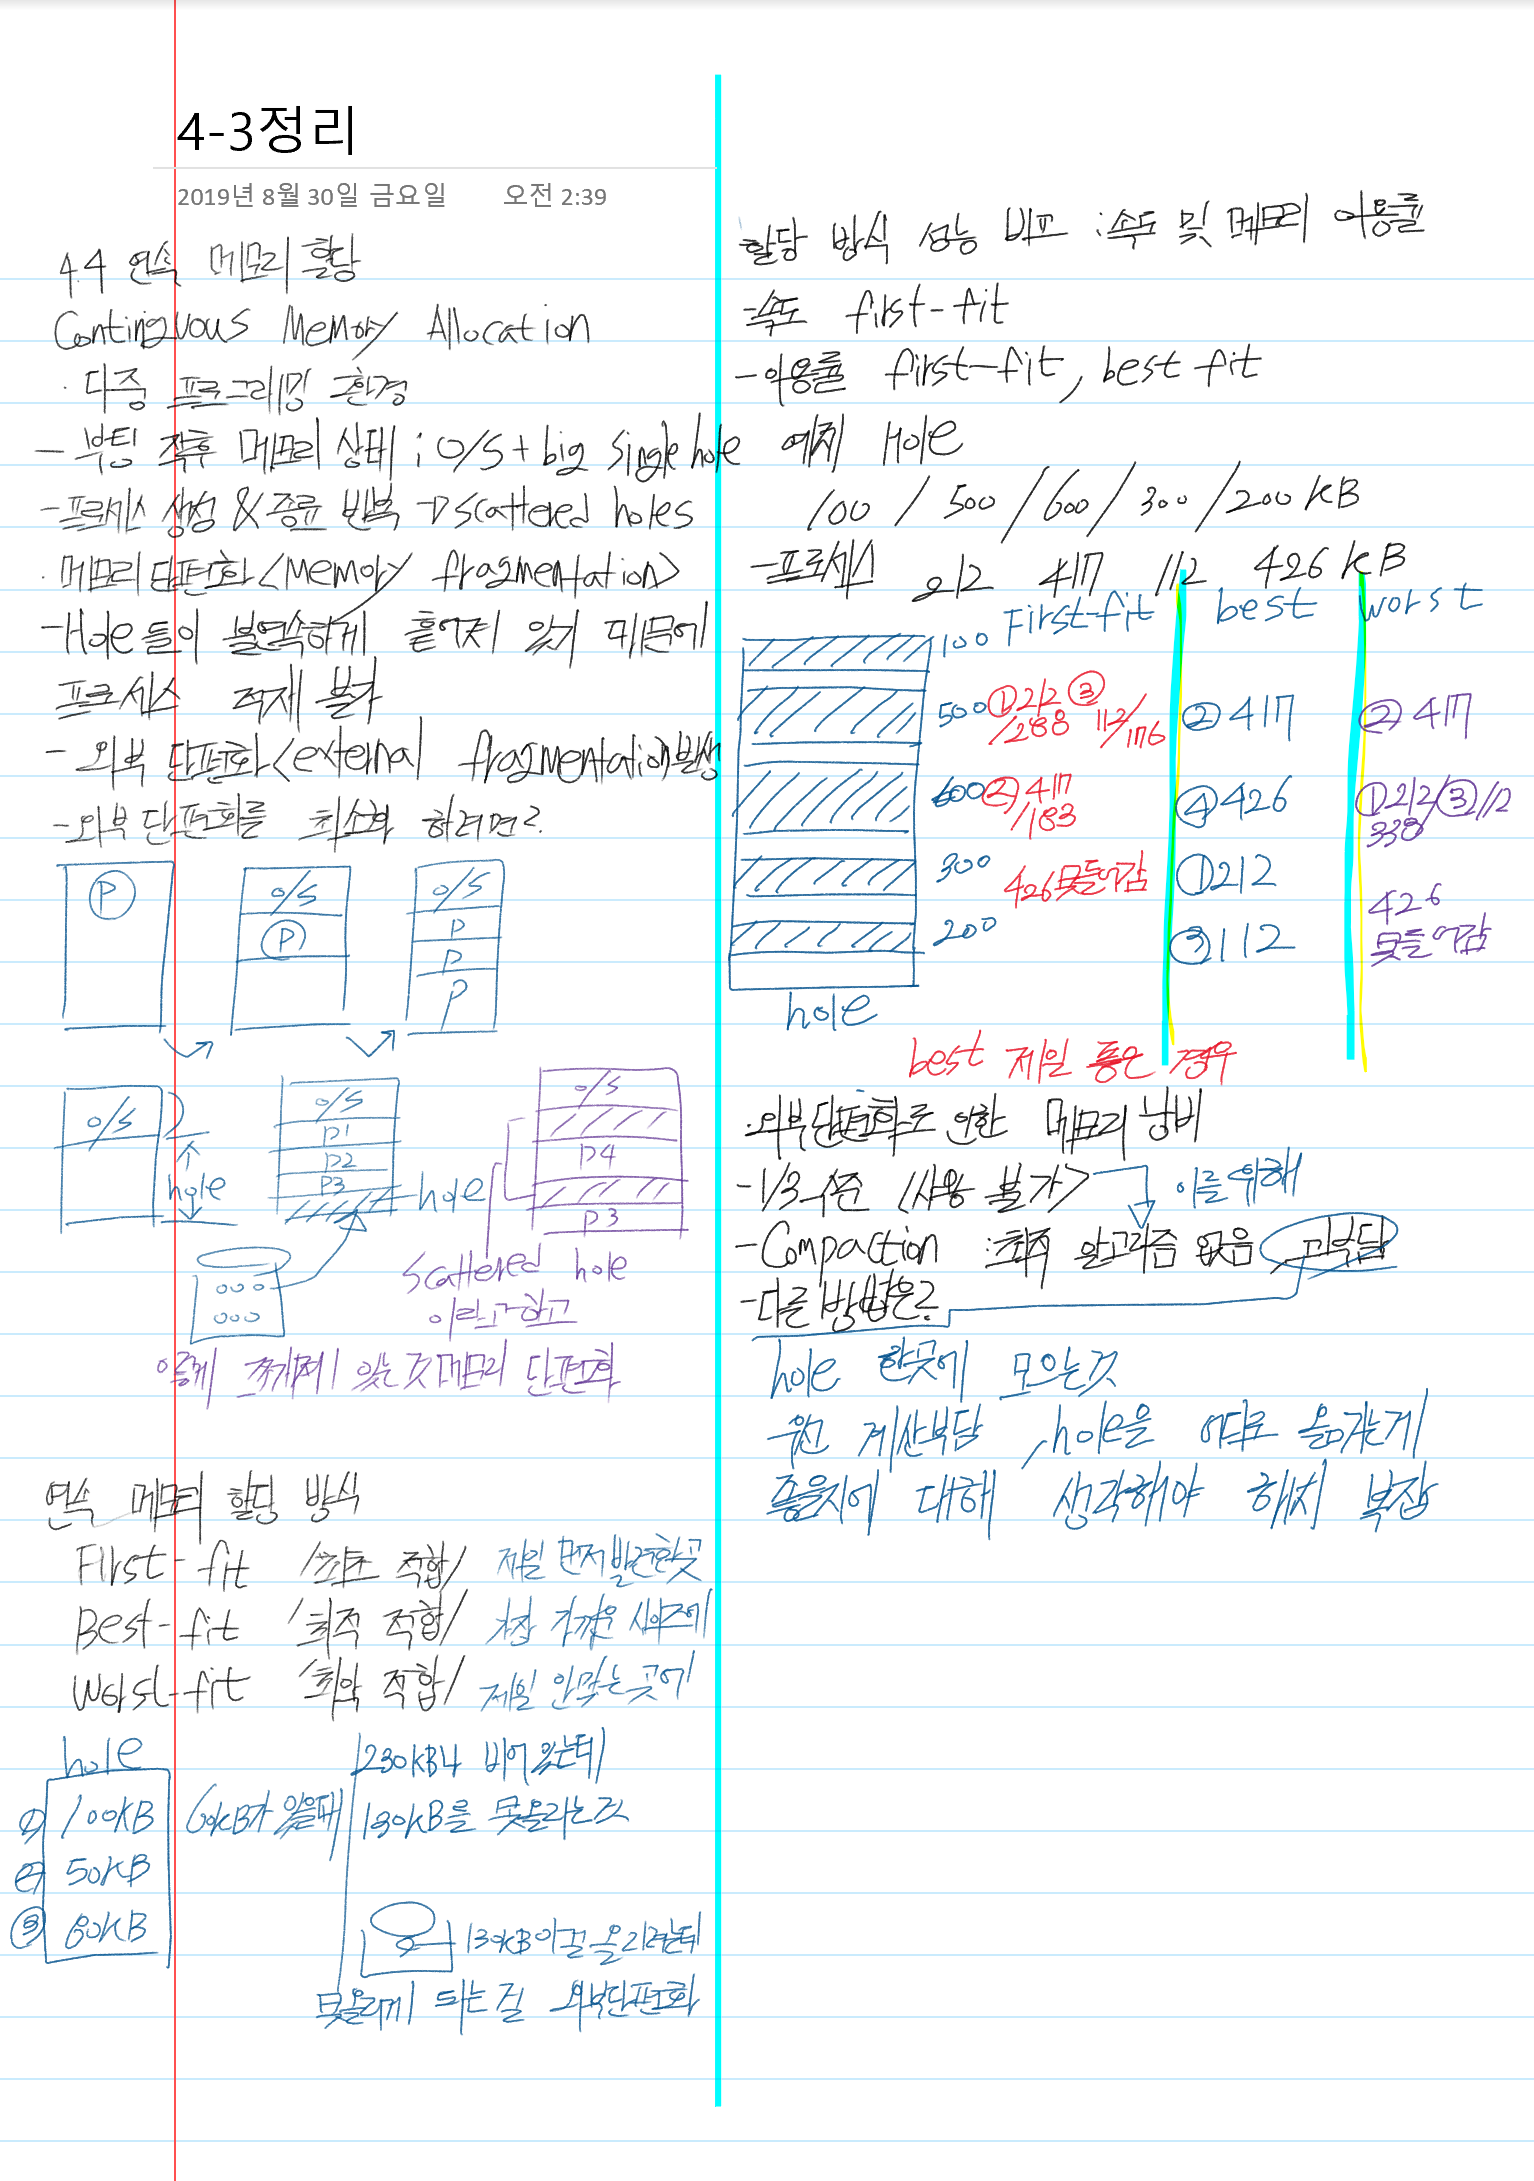 4-3정리
2019년 8월 30일 금요일 오전 2:39
4.4 연속 메모리 할당
Continguous Memory Allocation
· 다중 프로그래밍 환경
- 부팅 직후 메모리 상태 : O/S + big single hole
- 프로세스 생성 & 종류 반복 → scattered holes
· 메모리 단편화 <Memory fragmentation>
- Hole들이 불연속하게 흩어지 있기 때문에
프로세스 적재 불가
- 외부 단편화 <external fragmentation> 발생
- 외부 단편화를 최소화 하려면?
P
O/S
P
O/S
P
P
P
O/S
hole
O/S
P1
P2
P3
hole
O/S
P4
P3
scattered hole
이라고 하고
이렇게 쪼개져 있는 것 메모리 단편화
연속 메모리 할당 방식
First-fit /최초 적합/ 제일 먼저 발견한곳
Best-fit /최적 적합/ 가장 가까운 사이즈에
Worst-fit /최악 적합/ 제일 안맞는 곳에
hole
① 100KB
② 50KB
③ 80KB
60KB가 있을때
230KB나 비어 있는데
130KB를 못올리는것
130KB 올리려는데
못올리게 되는 걸 외부단편화
할당 방식 성능 비교 : 속도 및 메모리 이용률
- 속도 first-fit
- 이용률 first-fit, best fit
예제 Hole
100 / 500 / 600 / 300 / 200 KB
- 프로세스 212 417 112 426 KB
First-fit best worst
100
500 ①212 /288 ③ 112/176 ②417 ②417
600 ②417 /183 ④426 ①212/③112 338
300 426 못들어감 ①212 426 못들어감
200 ③112
hole
best 제일 좋은 경우
· 외부단편화로 인한 메모리 낭비
- 1/3 수준 <사용 불가> 이를 위해
- Compaction : 최적 알고리즘 없음 과부담
- 다른 방법은?
hole 한곳에 모으는것
우선 계산부담, hole을 어디로 옮기는게
좋을지에 대해 생각해야 해서 복잡